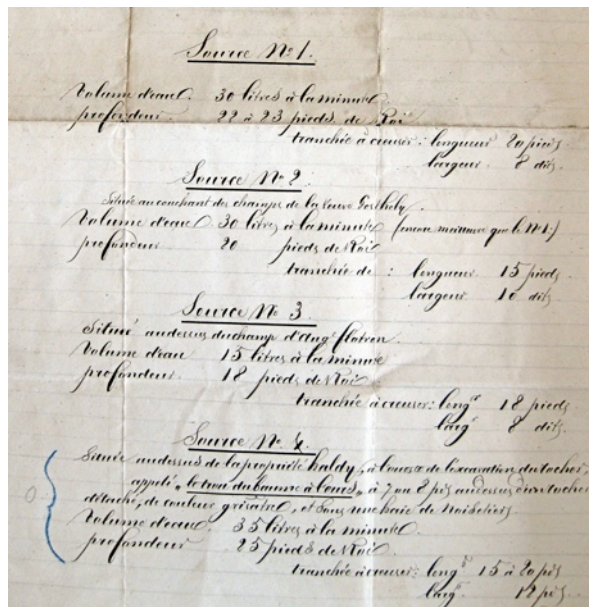 Source No 1.
Volume d'eau. 30 litres à la minute
profondeur. 22 à 23 pieds de Roi
tranchée à creuser: longueur 20 pieds
largeur. 8 dits.
Source No 2.
Située au couchant des champs de la veuve
Volume d'eau 30 litres à la minute (encore meilleure que le No 1.)
profondeur 20 pieds de Roi
tranchée de : longueur. 15 pieds.
largeur. 10 dits.
Source No 3.
Situé au dessus du champ d'Augte
Volume d'eau 15 litres à la minute
profondeur. 18 pieds de Roi.
tranchée à creuser: longr 18 pieds
largr 8 dits.
Source No 4.
Située au dessus de la propriété, à l'ouest de l'excavation du rocher,
appelé, à 7 ou 8 pds au dessus d'un rocher
détaché, de couleur grisâtre, et sous une haie de Noisetiers.
Volume d'eau. 35 litres à la minute.
profondeur 25 pieds de Roi.
tranchée à creuser: longr 15 à 20 pds
largr. 12 pds.